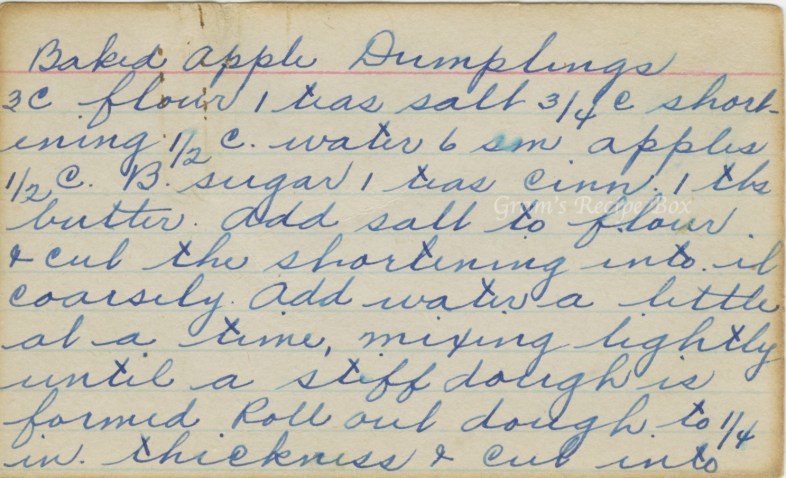 Baked Apple Dumplings
3 C flour 1 teas salt 3/4 C short-
ening 1/2 C. water 6 sm apples
1/2 C. B. sugar 1 teas cinn. 1 tbs
Gram's Recipe Box
butter. Add salt to flour
& cut the shortening into it
coarsely. Add water a little
at a time, mixing lightly
until a stiff dough is
formed Roll out dough to 1/4
in. thickness & cut into